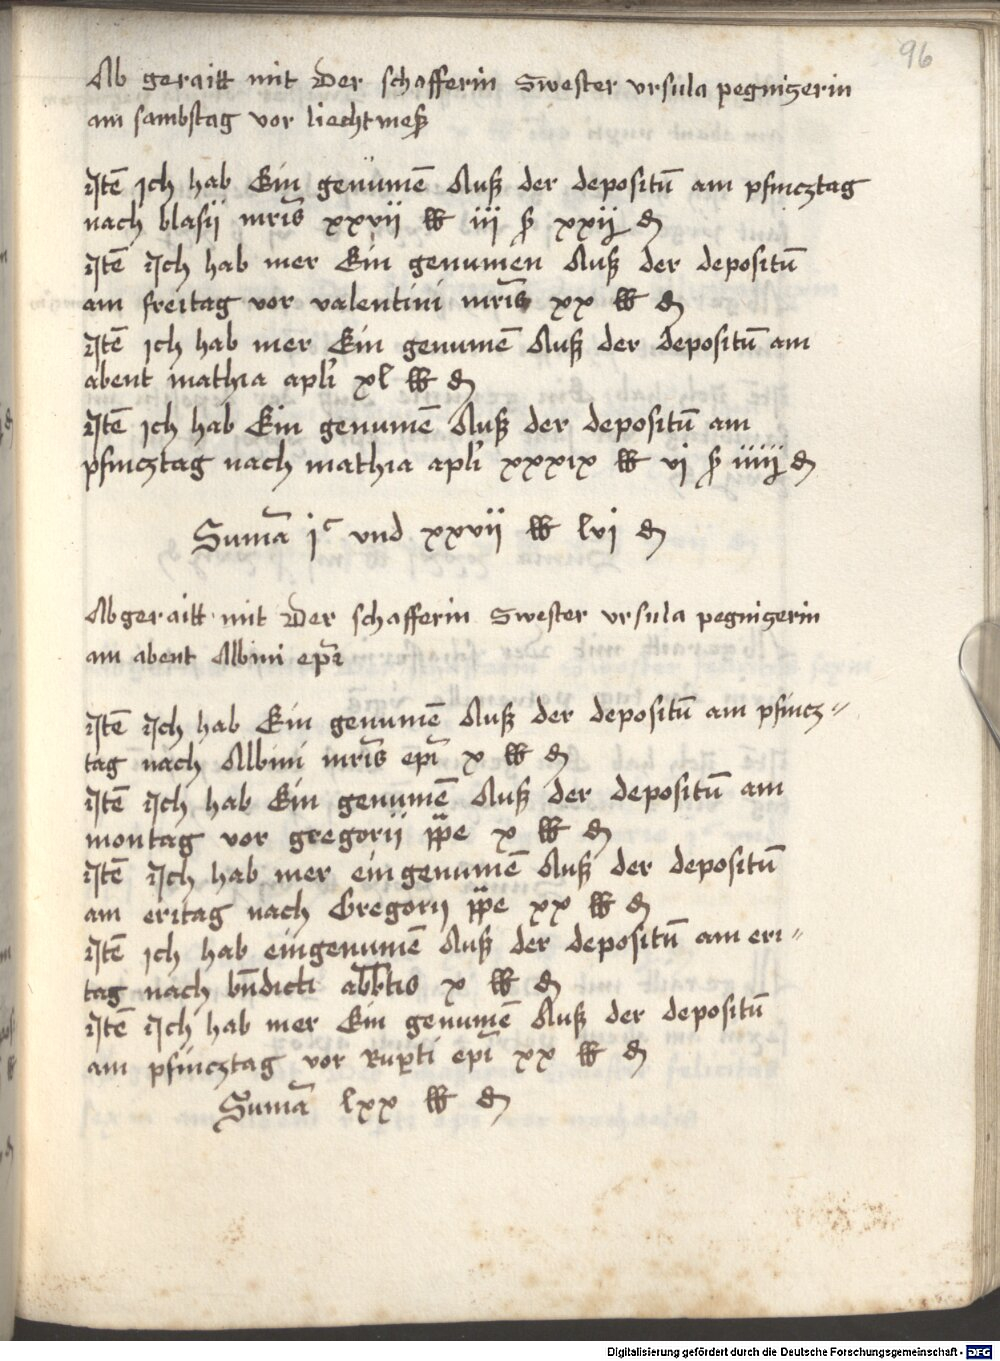 96
Ab geraitt mit Der schafferin Swester vrsula pegnigerin
am sambstag vor liechtmeß
Jtē Jch hab Ein genumē Auß der depositū am pfincztag
nach blasÿ mrīs xxvii ℔ iii ß xxij ₰
Jtē Jch hab mer Ein genumen Auß der depositū
am freitag vor valentini mrīs xx ℔ ₰
Jtē ich hab mer Ein genumē Auß der depositū am
abent mathia apl̄i xl ℔ ₰
Jtē ich hab Ein genumē Auß der depositū am
pfincztag nach mathia apl̄i xxxix ℔ vi ß iiiij ₰
Sum̄a jᶜ vnd xxvii ℔ lvi ₰
Abgeraitt mit Der schafferin Swester vrsula pegnigerin
am abent Albini ep̄i
Jtē Jch hab Ein genumē Auß der depositū am pfincz⸗
tag nach Albini mrīs ep̄i x ℔ ₰
Jtē Jch hab Ein genumē Auß der depositū am
montag vor gregorij p̄pe x ℔ ₰
Jtē Jch hab mer eingenumē Auß der depositū
am eritag nach Gregorij p̄pe xx ℔ ₰
Jtē ich hab eingenumē Auß der depositū am eri⸗
tag nach bn̄dicti ab̄btis x ℔ ₰
Jtē Jch hab mer Ein genumē Auß der depositū
am pfincztag vor Rup̱ti ep̄i xx ℔ ₰
Sum̄a lxx ℔ ₰
Digitalisierung gefördert durch die Deutsche Forschungsgemeinschaft - DFG